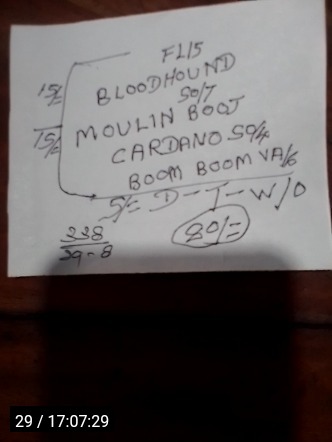 FL/5
15/= BLOODHOUND
SO/7
15/= MOULIN BOOJ
CARDANO SO/4
BOOM BOOM VA/6
5/= D - T - W/O
338
59-8
80/=
29 / 17:07:29